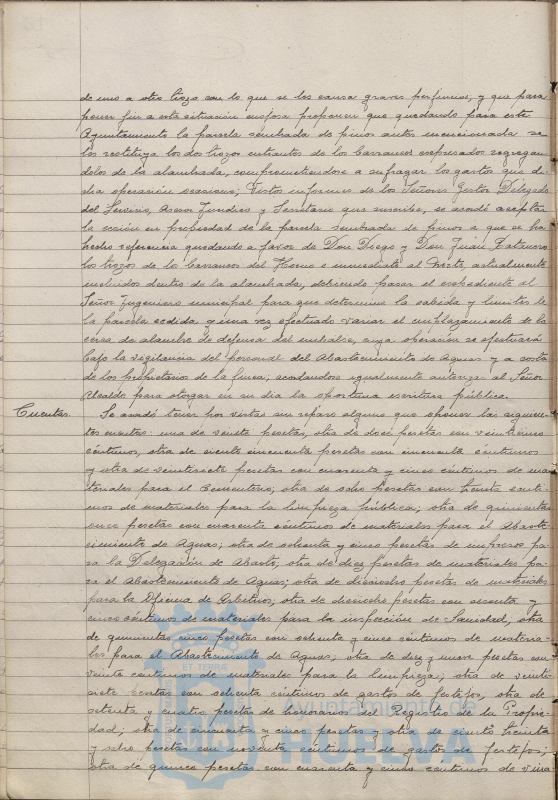 de uno a otro trozo con lo que se les causa graves perjuicios, y que para
poner fin a esta situación enojosa proponen que quedando para este
Ayuntamiento la parcela sembrada de pinos antes mencionada se
les restituya los dos trozos entrantes de los barrancos expresados segregan-
dolos de la alambrada, comprometiéndose a sufragar los gastos que di-
cha operación ocasione; Vistos informes de los Señores Gestor Delegado
del Servicio, Asesor Jurídico y Secretario que suscribe, se acordó aceptar
la cesión en propiedad de la parcela sembrada de pinos a que se ha
hecho referencia quedando a favor de Don Diego y Don Juan
los trozos de los barrancos del Horno e inmediato al Oeste, actualmente
incluidos dentro de la alambrada, debiendo pasar el expediente al
Señor Ingeniero municipal para que determine la cabida y limites de
la parcela cedida y una vez efectuado variar el emplazamiento de la
cerca de alambre de defensa del embalse, cuya operación se efectuará
bajo la vigilancia del personal del Abastecimiento de Aguas y a costa
de los propietarios de la finca; acordandose igualmente autorizar al Señor
Alcalde para otorgar en su día la oportuna escritura pública.
Cuentas. Se acordó tener por vistas sin reparo alguno que oponer las siguien-
tes cuentas: una de veinte pesetas, otra de doce pesetas con veinticinco
céntimos, otra de ciento cincuenta pesetas con cincuenta céntimos
y otra de veintisiete pesetas con cuarenta y cinco céntimos de ma-
teriales para el Cementerio; otra de ocho pesetas con treinta cénti-
mos de materiales para la limpieza pública; otra de quinientas
once pesetas con cuarenta céntimos de materiales para el Abaste-
cimiento de Aguas; otra de ochenta y cinco pesetas de impresos pa-
ra la Delegación de Abasto; otra de diez pesetas de materiales pa-
ra el Abastecimiento de Aguas; otra de dieciocho pesetas de materiales
para la Oficina de Arbitrios; otra de dieciocho pesetas con sesenta y
cinco céntimos de materiales para la inspección de Sanidad, otra
de quinientas cinco pesetas con ochenta y cinco céntimos de materia-
les para el Abastecimiento de Aguas; otra de diez y nueve pesetas con
veinte céntimos de materiales para la limpieza; otra de veinti-
siete pesetas con ochenta céntimos de gastos de festejos, otra de
setenta y cuatro pesetas de honorarios del Registro de la Propie-
dad; otra de cincuenta y cinco pesetas y otra de ciento treinta
y ocho pesetas con noventa céntimos de gastos de festejos;
otra de quince pesetas con cuarenta y cinco céntimos de
ET TERRA
Ayuntamiento de
HUELVA